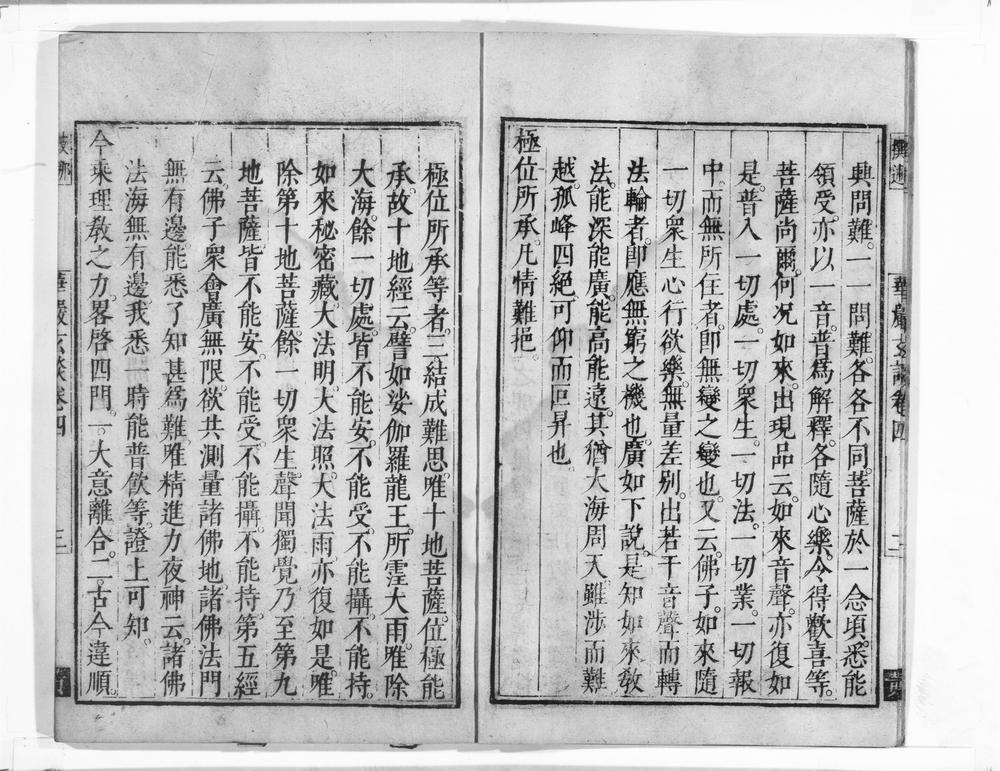 興問難。一一問難。各各不同。菩薩於一念頃。悉能
領受。亦以一音。普爲解釋。各隨心樂。令得歡喜等。
菩薩尚爾。何况如來。出現品云。如來音聲。亦復如
是。普入一切處。一切衆生。一切法。一切業。一切報
中。而無所住者。即無變之變也。又云。佛子。如來隨
一切衆生心行欲樂。無量差別。出若干音聲而轉
法輪者。即應無窮之機也。廣如下說。是知如來教
法。能深能廣。能高能遠。其猶大海周天。雖涉而難
越。孤峰四絕。可仰而叵昇也。
極位所承。凡情難挹。
華嚴玄談卷四
二
極位所承等者。三結成難思。唯十地菩薩。位極能
承。故十地經云。譬如娑伽羅龍王。所霔大雨。唯除
大海。餘一切處。皆不能安。不能受。不能攝。不能持。
如來秘密藏。大法明。大法照。大法雨。亦復如是。唯
除第十地菩薩。餘一切衆生。聲聞獨覺。乃至第九
地菩薩。皆不能安。不能受。不能攝。不能持。第五經
云。佛子衆會廣無限。欲共測量諸佛地。諸佛法門
無有邊。能悉了知甚爲難。唯精進力夜神云。諸佛
法海無有邊。我悉一時能普飲等。證上可知。
今乘理教之力。畧啓四門。一。大意離合。二。古今違順。
華嚴玄談卷四
三